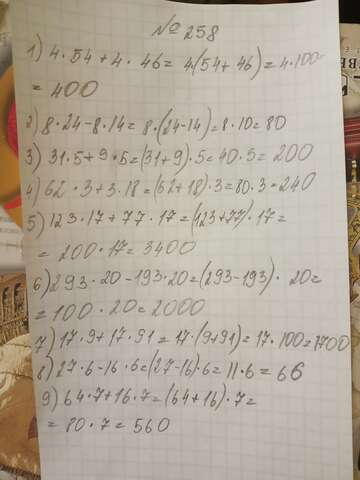 № 258
1) 4 · 54 + 4 · 46 = 4(54 + 46) = 4 · 100
= 400
2) 8 · 24 - 8 · 14 = 8 · (24 - 14) = 8 · 10 = 80
3) 31 · 5 + 9 · 5 = (31 + 9) · 5 = 40 · 5 = 200
4) 62 · 3 + 3 · 18 = (62 + 18) · 3 = 80 · 3 = 240
5) 123 · 17 + 77 · 17 = (123 + 77) · 17 =
= 200 · 17 = 3400
6) 293 · 20 - 193 · 20 = (293 - 193) · 20 =
= 100 · 20 = 2000
7) 17 · 9 + 17 · 91 = 17 · (9 + 91) = 17 · 100 = 1700
8) 27 · 6 - 16 · 6 = (27 - 16) · 6 = 11 · 6 = 66
9) 64 · 7 + 16 · 7 = (64 + 16) · 7 =
= 80 · 7 = 560